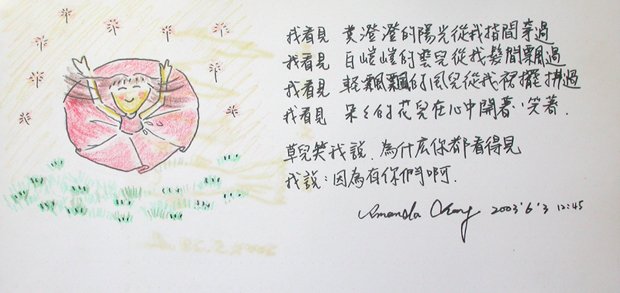 我看見 黃澄澄的陽光從我指間穿過
我看見 白皚皚的雲兒從我髮間飄過
我看見 輕飄飄的風兒從我裙擺拂過
我看見 朵朵的花兒在心中開著、笑著.
草兒笑我說.為什么你都看得見
我說:因為有你們啊.
Amanda 2003'6'3 12:45